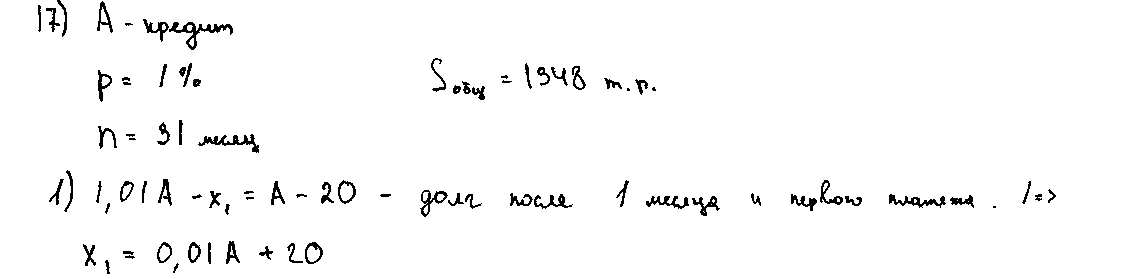 17) А - кредит
p = 1 %
Sобщ = 1348 т.р.
n = 31 месяц
1) 1,01А - x₁ = А - 20 - долг после 1 месяца и первого платежа. /=>
x₁ = 0,01А + 20